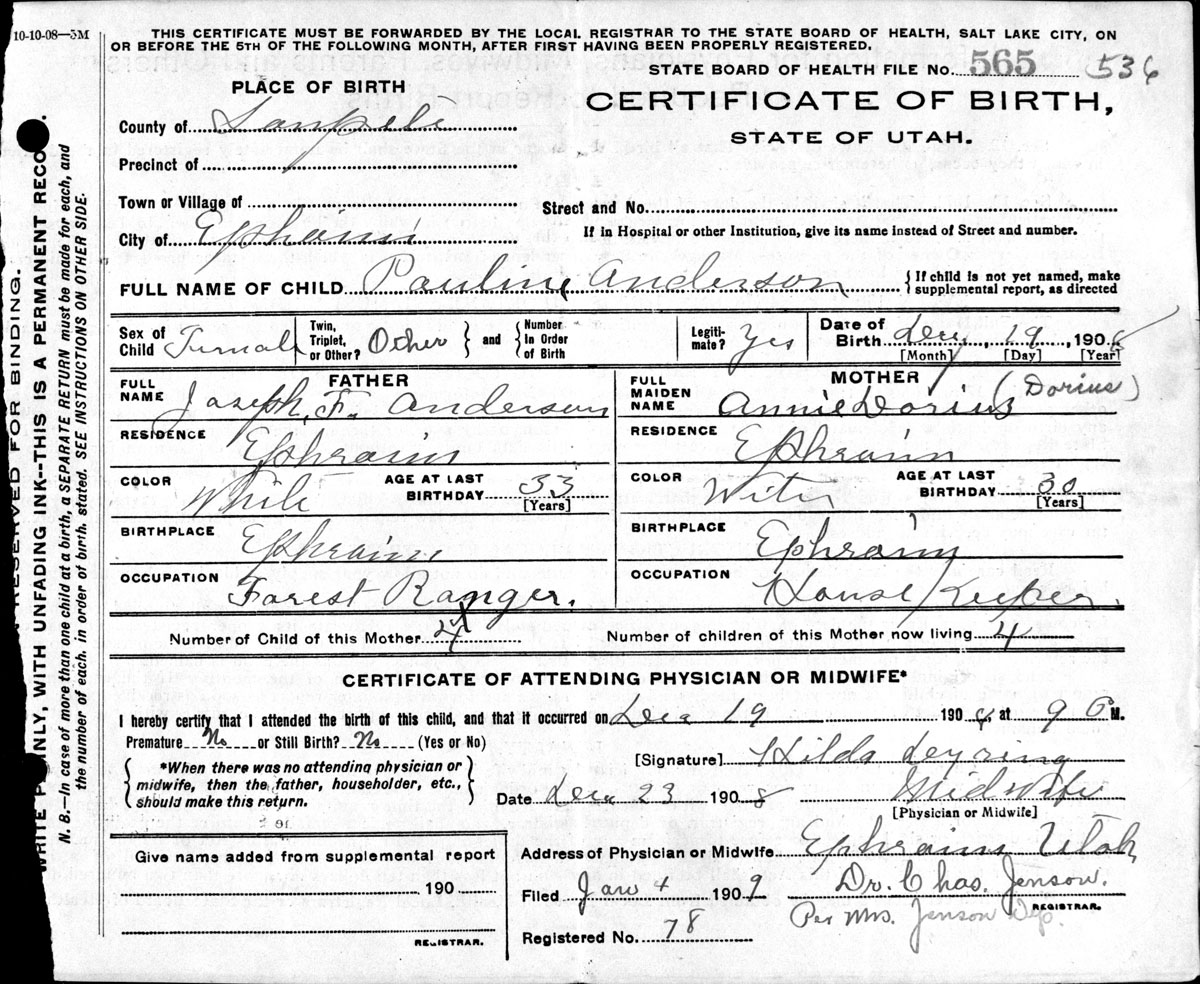 10-10-08—3M
THIS CERTIFICATE MUST BE FORWARDED BY THE LOCAL REGISTRAR TO THE STATE BOARD OF HEALTH, SALT LAKE CITY, ON
OR BEFORE THE 5TH OF THE FOLLOWING MONTH, AFTER FIRST HAVING BEEN PROPERLY REGISTERED.
STATE BOARD OF HEALTH FILE No. 565 536
PLACE OF BIRTH
CERTIFICATE OF BIRTH,
STATE OF UTAH.
County of Sanpete
Precinct of
Town or Village of
Street and No.
City of Ephraim
If in Hospital or other Institution, give its name instead of Street and number.
FULL NAME OF CHILD Pauline Anderson { If child is not yet named, make
supplemental report, as directed
Sex of Child Femal
Twin, Triplet, or Other? Other } and { Number In Order of Birth
Legitimate? Yes
Date of Birth Dec, 19, 1908
[Month] [Day] [Year]
FATHER
FULL NAME Joseph, F. Anderson
RESIDENCE Ephraim
COLOR White AGE AT LAST BIRTHDAY 33
[Years]
BIRTHPLACE Ephraim
OCCUPATION Forest Ranger.
MOTHER
FULL MAIDEN NAME Annie Dorius (Dorius)
RESIDENCE Ephraim
COLOR AGE AT LAST BIRTHDAY 30
[Years]
BIRTHPLACE Ephraim
OCCUPATION House Keeper.
Number of Child of this Mother 4 Number of children of this Mother now living 4
CERTIFICATE OF ATTENDING PHYSICIAN OR MIDWIFE*
I hereby certify that I attended the birth of this child, and that it occurred on Dec 19 1908, at 9 P M.
Premature No or Still Birth? No (Yes or No)
{ *When there was no attending physician or
midwife, then the father, householder, etc.,
should make this return. }
[Signature] Hilda
Date Dec 23 1908 Midwife
[Physician or Midwife]
Give name added from supplemental report
190
REGISTRAR.
Address of Physician or Midwife Ephraim Utah
Filed Jan 4 1909 Dr. Chas. Jenson.
REGISTRAR.
Per Mrs. Jenson Dep.
Registered No. 78
RESERVED FOR BINDING.
WRITE PLAINLY, WITH UNFADING INK--THIS IS A PERMANENT RECO
N. B.—In case of more than one child at a birth, a SEPARATE RETURN must be made for each, and
the number of each, in order of birth, stated. SEE INSTRUCTIONS ON OTHER SIDE.